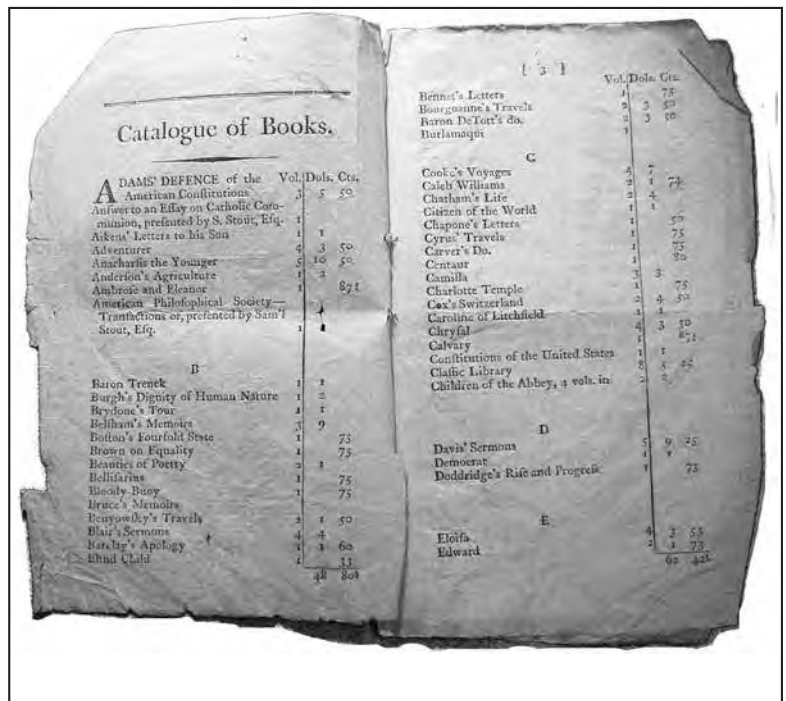 Catalogue of Books.
Vol. Dols. Cts.
ADAMS' DEFENCE of the
American Constitutions 3 5 50
Answer to an Essay on Catholic Com-
munion, presented by S. Stout, Esq. 1
Aikens' Letters to his Son 1 1
Adventurer 4 3 50
Anacharsis the Younger 5 10 50
Anderson's Agriculture 1 2
Ambrose and Eleanor 1 87½
American Philosophical Society—
Transactions of, presented by Sam'l
Stout, Esq. 1 1
B
Baron Trenck 1 1
Burgh's Dignity of Human Nature 1 2
Brydone's Tour 1 1
Belsham's Memoirs 3 9
Boston's Fourfold State 1 75
Brown on Equality 1 75
Beauties of Poetry 2 1
Bellisarius 1 75
Bloody Buoy 1 75
Bruce's Memoirs
Benyowsky's Travels 2 1 50
Blair's Sermons 4 4
Barclay's Apology 1 1 60
Blind Child 1 33
48 80½
[ 3 ]
Vol. Dols. Cts.
Bennet's Letters 1 75
Bourgoanne's Travels 2 3 50
Baron DeTott's do. 2 3 50
Burlamaqui 1
C
Cooke's Voyages 4 7
Caleb Williams 2 1 75
Chatham's Life 2 4
Citizen of the World 1 1
Chapone's Letters 1 50
Cyrus' Travels 1 75
Carver's Do. 1 75
Centaur 1 80
Camilla 3 3
Charlotte Temple 1 75
Cox's Switzerland 2 4 50
Caroline of Litchfield 1 1
Chrysal 4 3 50
Calvary 1 87½
Constitutions of the United States 1 1
Classic Library 8 5 25
Children of the Abbey, 4 vols. in 2 2
D
Davis' Sermons 5 9 25
Democrat 1 1
Doddridge's Rise and Progress 1 75
E
Eloisa 4 3 53
Edward 2 1 73
62 42½